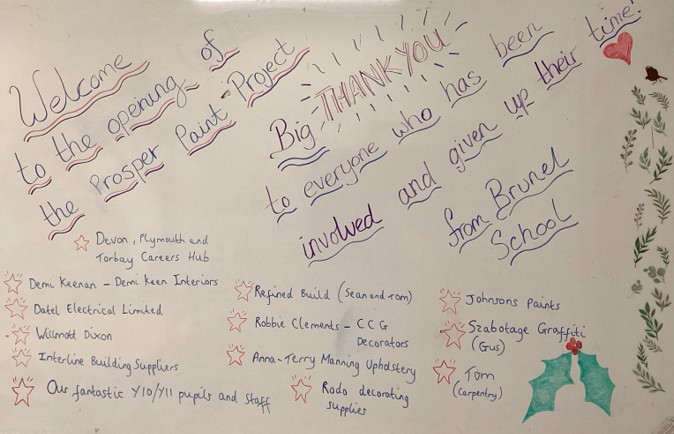 Welcome
to the opening of
the Prosper Paint Project
Big THANK YOU
to everyone who has been
involved and given up their time!
from Brunel
School
Devon, Plymouth and
Torbay Careers Hub
Demi Keenan - Demi Keen Interiors
Datel Electrical Limited
Willmott Dixon
Interline Building Suppliers
Our fantastic Y10/Y11 pupils and staff
Refined Build (Sean and Tom)
Robbie Clements - CCG
Decorators
Anna-Terry Manning Upholstery
Rodo decorating
supplies
Johnsons Paints
Szabotage Graffiti
(Gus)
Tom
(Carpentry)